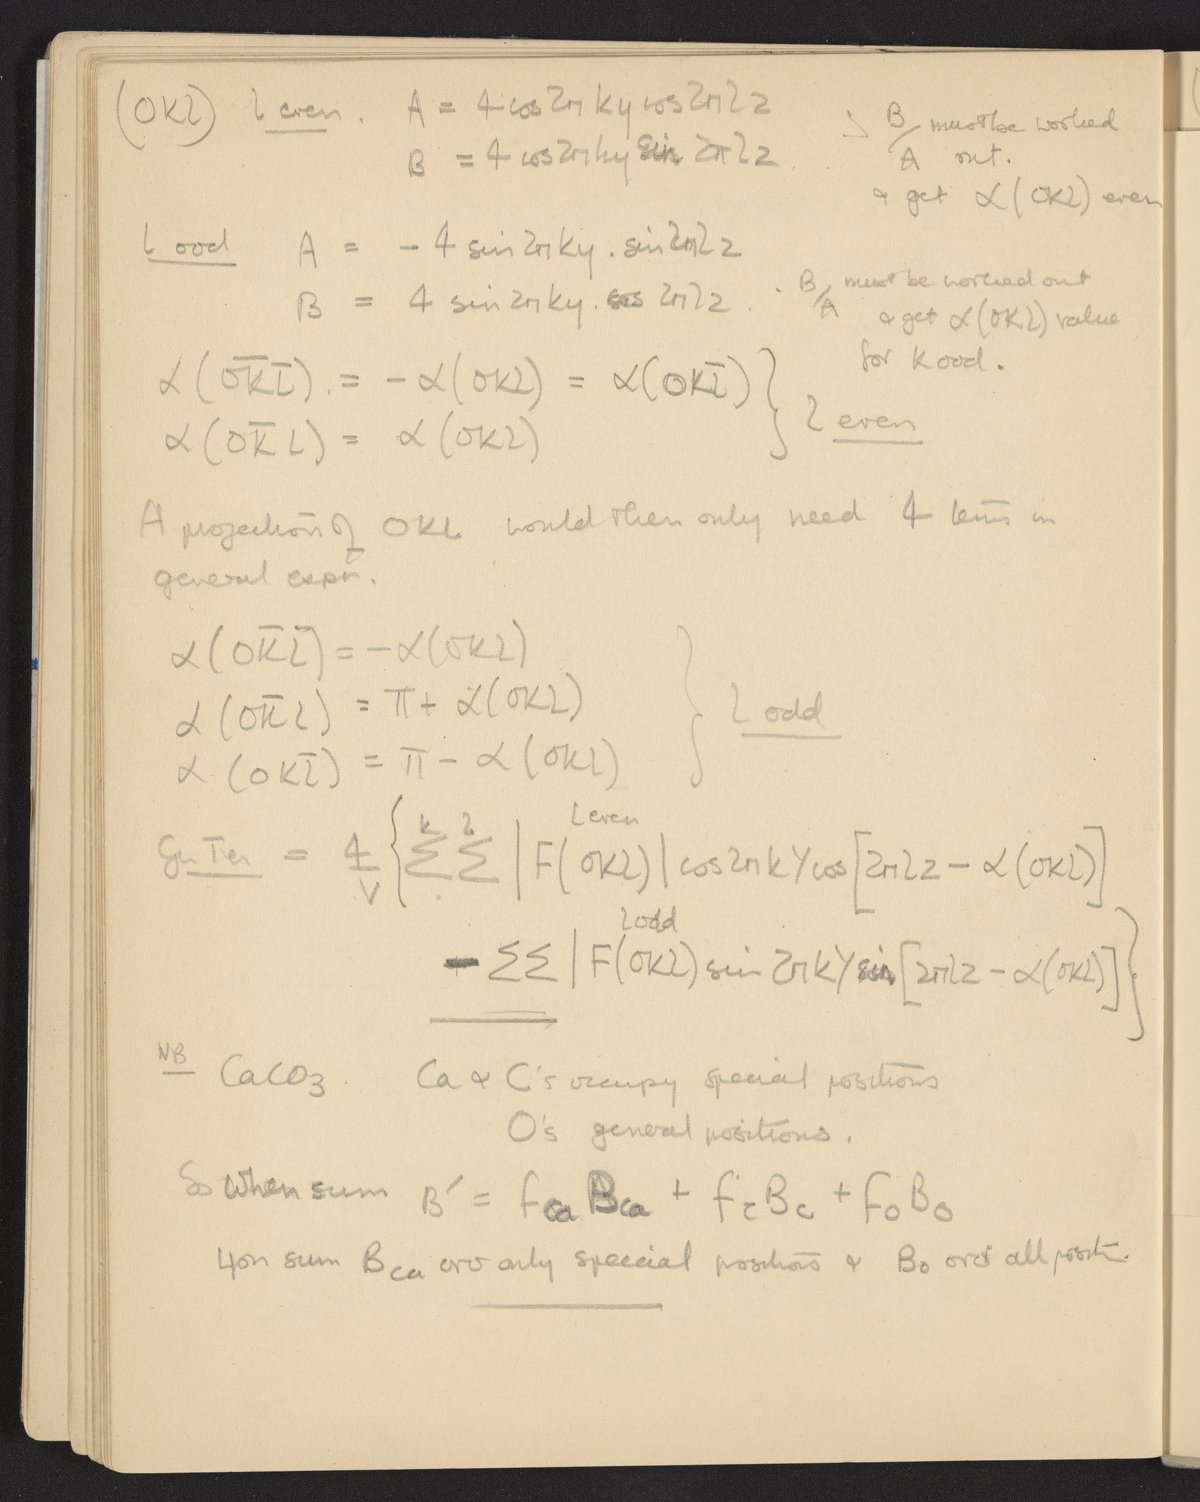 (OKl) l even. A = 4 cos2π ky cos2πlz
B = 4 cos2πky sin 2πlz
B/A must be worked
out.
& get α(OKl) even
l odd A = - 4 sin2πky . sin2πlz
B = 4 sin2πky. cos 2πlz.
B/A must be worked out
& get α(OKl) value
for K odd.
α(OK̄l̄) = -α(OKl) = α(OKl̄) } l even
α(OK̄l) = α(OKl)
A projection of OKL would then only need 4 terms in
general expn.
α(OK̄l̄) = -α(OKl)
α(OK̄l) = π + α(OKl) } l odd
α(OKl̄) = π - α(OKl)
l even
= 4/V { Σᵏ Σˡ |F(OKl)| cos2πkY cos[2πlz - α(OKl)]
l odd
- ΣΣ |F(OKl) sin 2πkY sin[2πlz - α(OKl)] }
NB CaCO₃. Ca & C's occupy special positions
O's general positions.
So when sum B′ = fCa BCa + fc Bc + fo Bo
you sum BCa over only special positions & Bo over all positn.